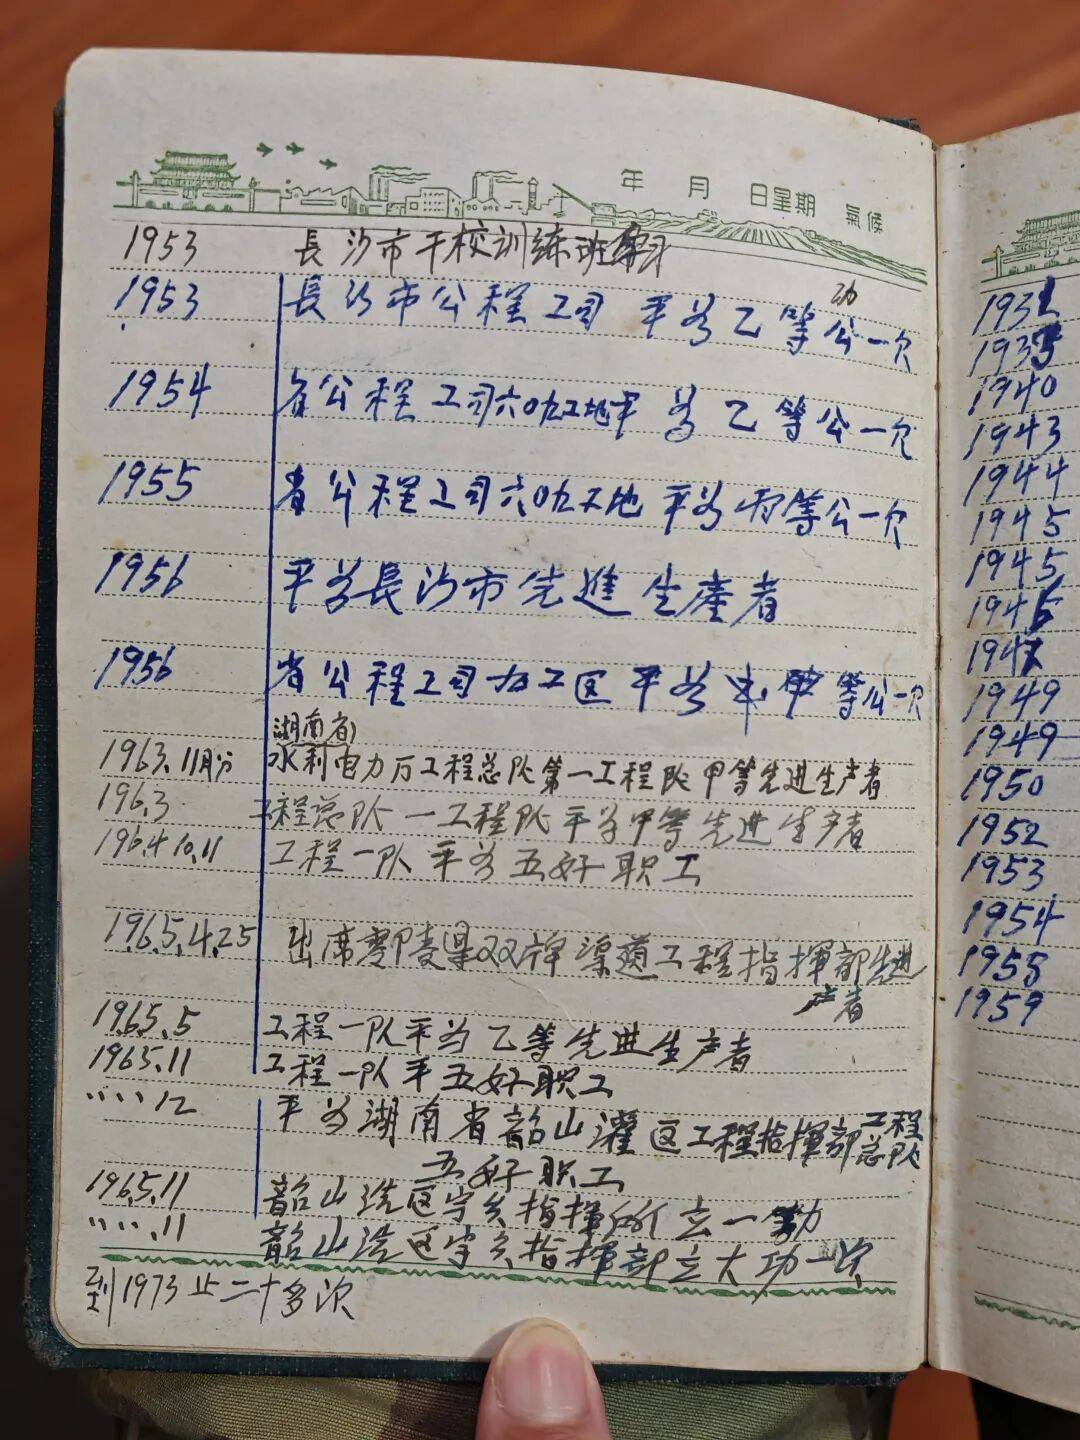 年 月 日星期 氣候
1953 長沙市干校训练班学习
1953 長沙市公程工司 平为乙等公一次
功
1954 省公程工司六〇九工地平为乙等公一次
1955 省公程工司六〇九工地平为丙等公一次
1956 平为長沙市先進生產者
1956 省公程工司加工区平为甲等公一次
湖南省
1963.11月分 水利电力厅工程总队第一工程队甲等先进生产者
1963 工程总队一工程队平为甲等先进生产者
1964.10.11 工程一队平为五好职工
1965.4.25 出席零陵县双牌渠道工程指揮部先进
产者
1965.5 工程一队平为乙等先进生产者
1965.11 工程一队平五好职工
〃〃12 平为湖南省韶山灌区工程指揮部工程
总队
五好职工
1965.11 韶山灌区宁乡指揮所立一功
〃〃.11 韶山灌区宁乡指揮部立大功一次
到1973止二十多次
1931
1935
1940
1943
1944
1945
1945
1946
1947
1949
1949
1950
1952
1953
1954
1955
1959